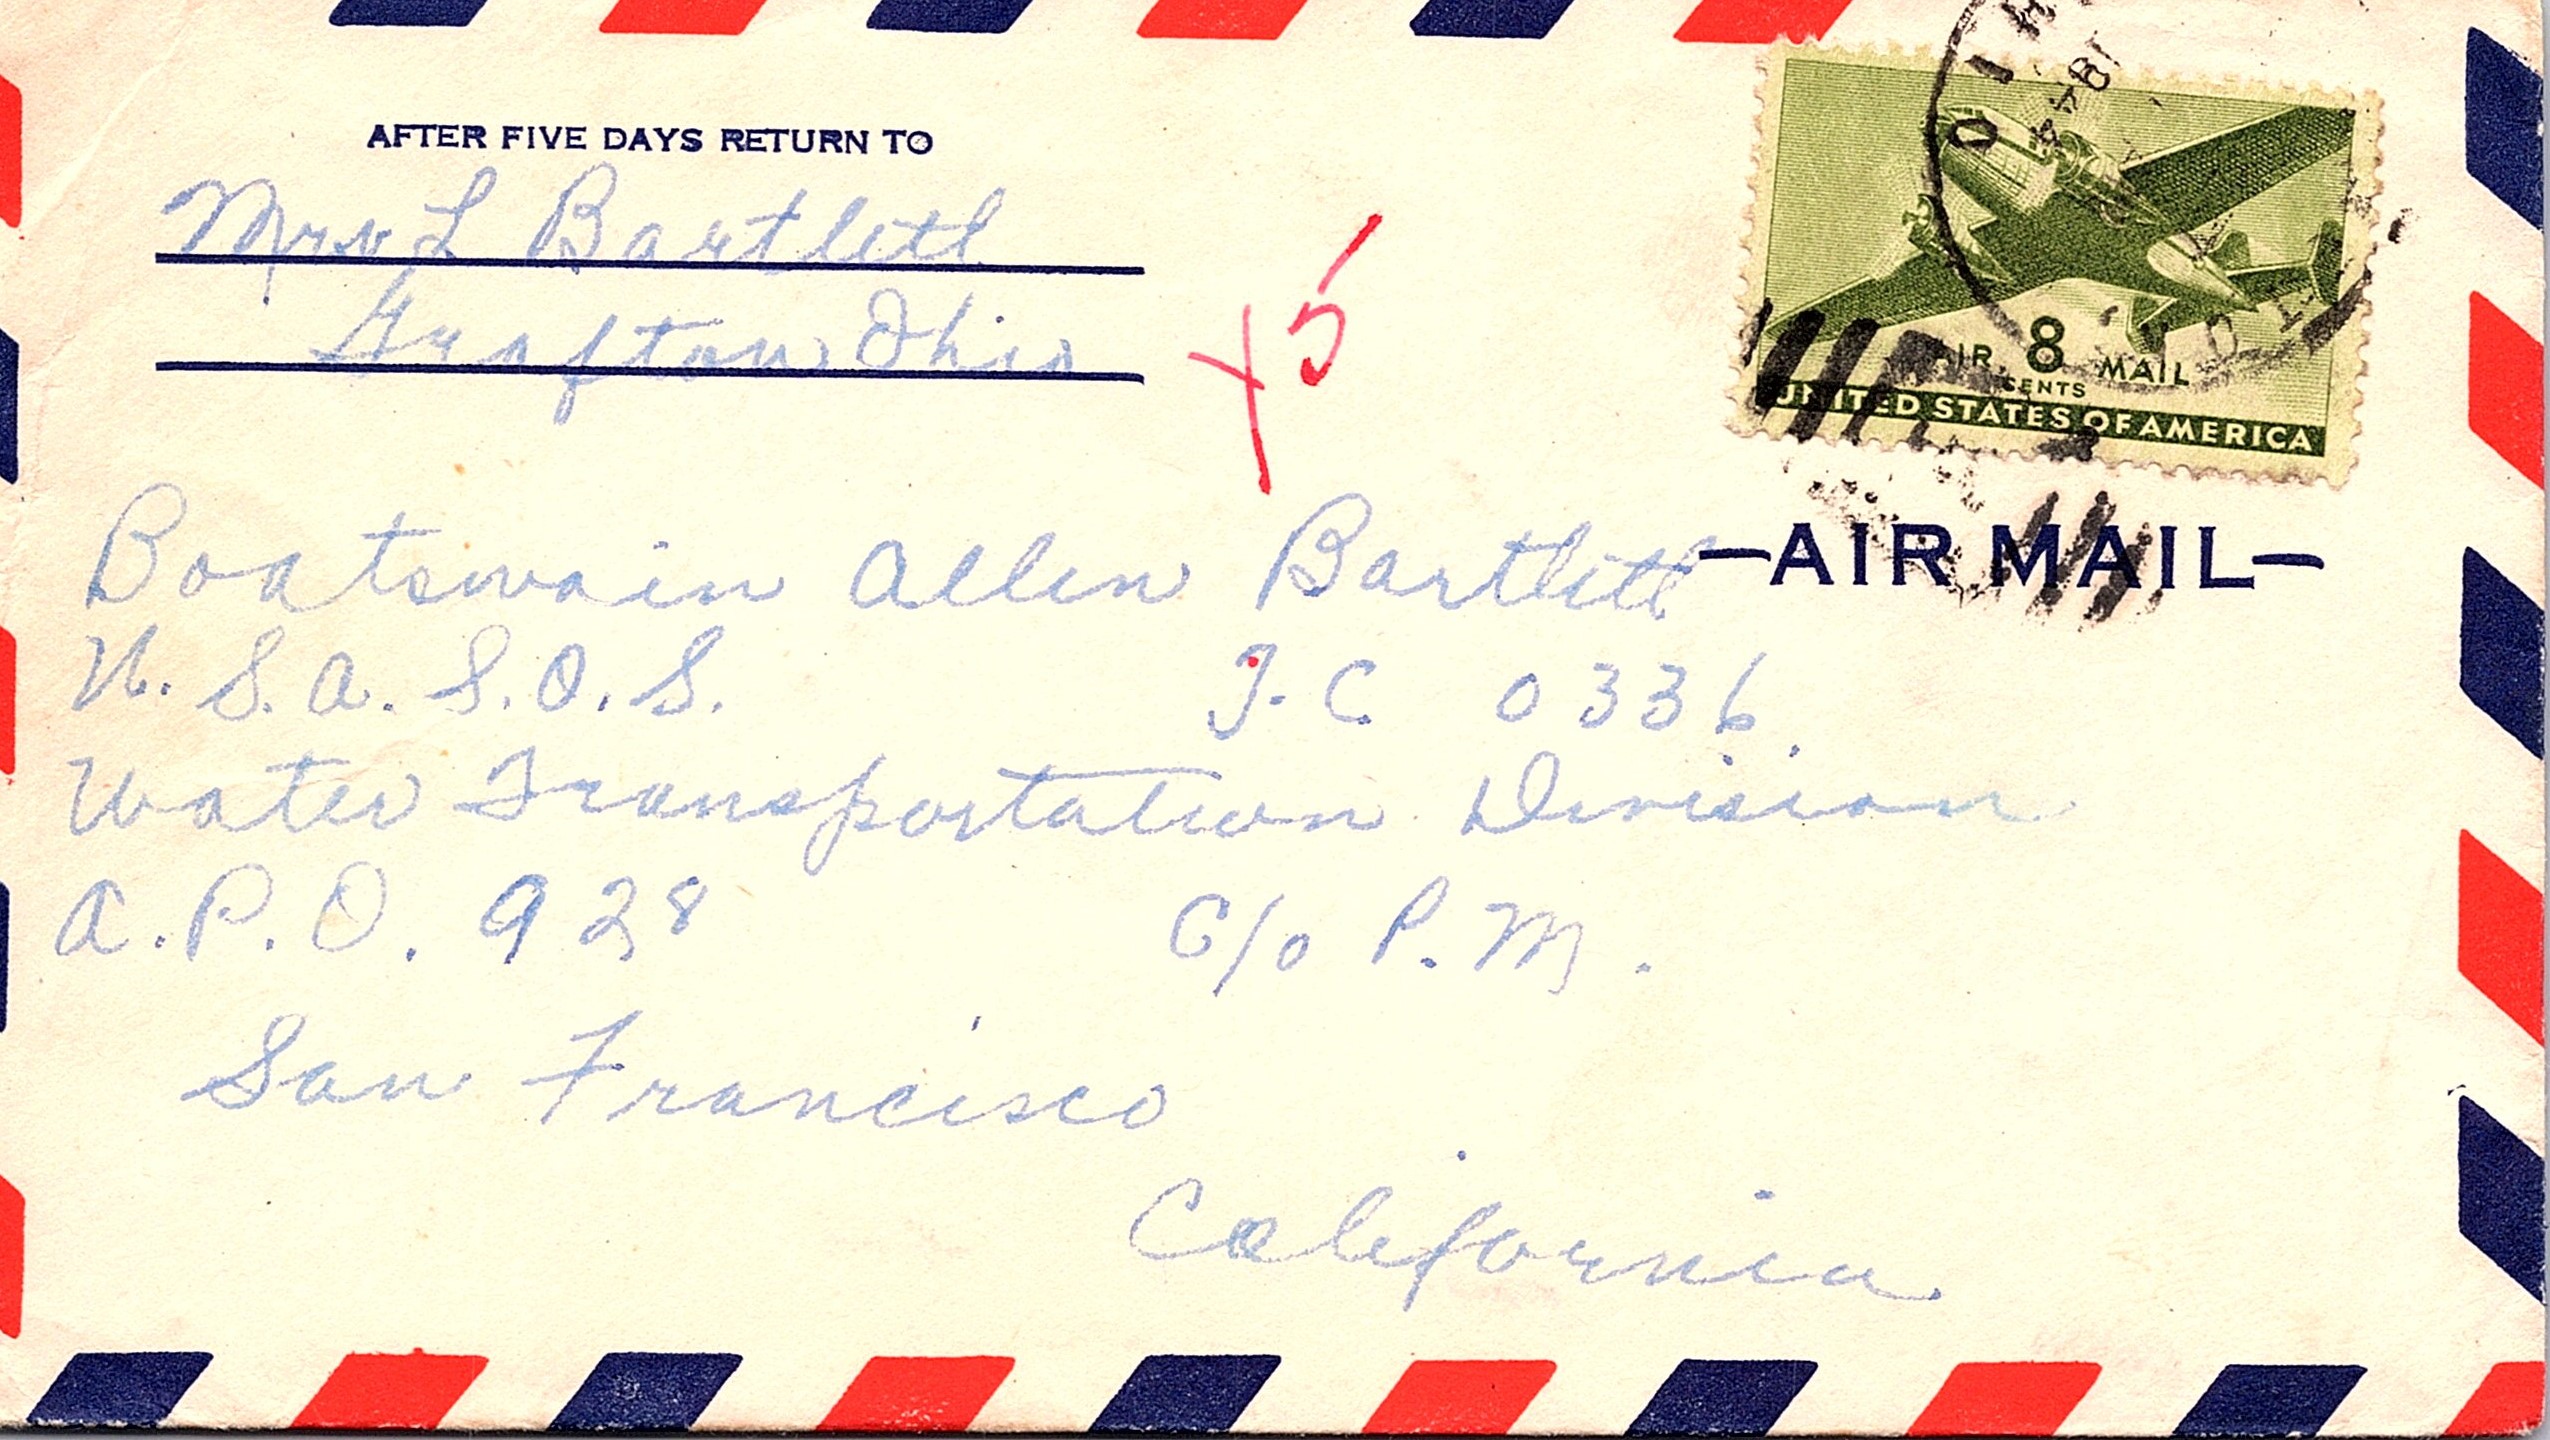 AFTER FIVE DAYS RETURN TO
Mrs L Bartlett
Grafton Ohio
X5
AIR 8 MAIL
CENTS
UNITED STATES OF AMERICA
—AIR MAIL—
Boatswain Allen Bartlett
U.S.A.S.O.S. T.C 0336.
Water Transportation Division
A.P.O. 928 C/o P.M.
San Francisco
California